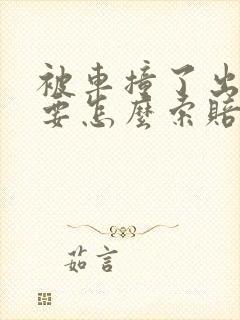 被車撞了出
要怎麼索賠
茹言